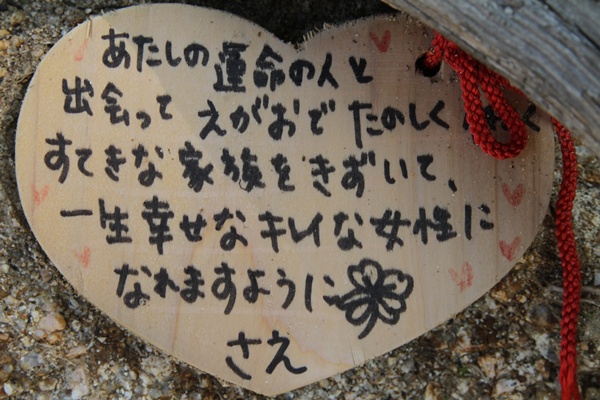 あたしの運命の人と
出会って えがおで たのしく く
すてきな家族をきずいて、
一生幸せなキレイな女性に
なれますように
さえ